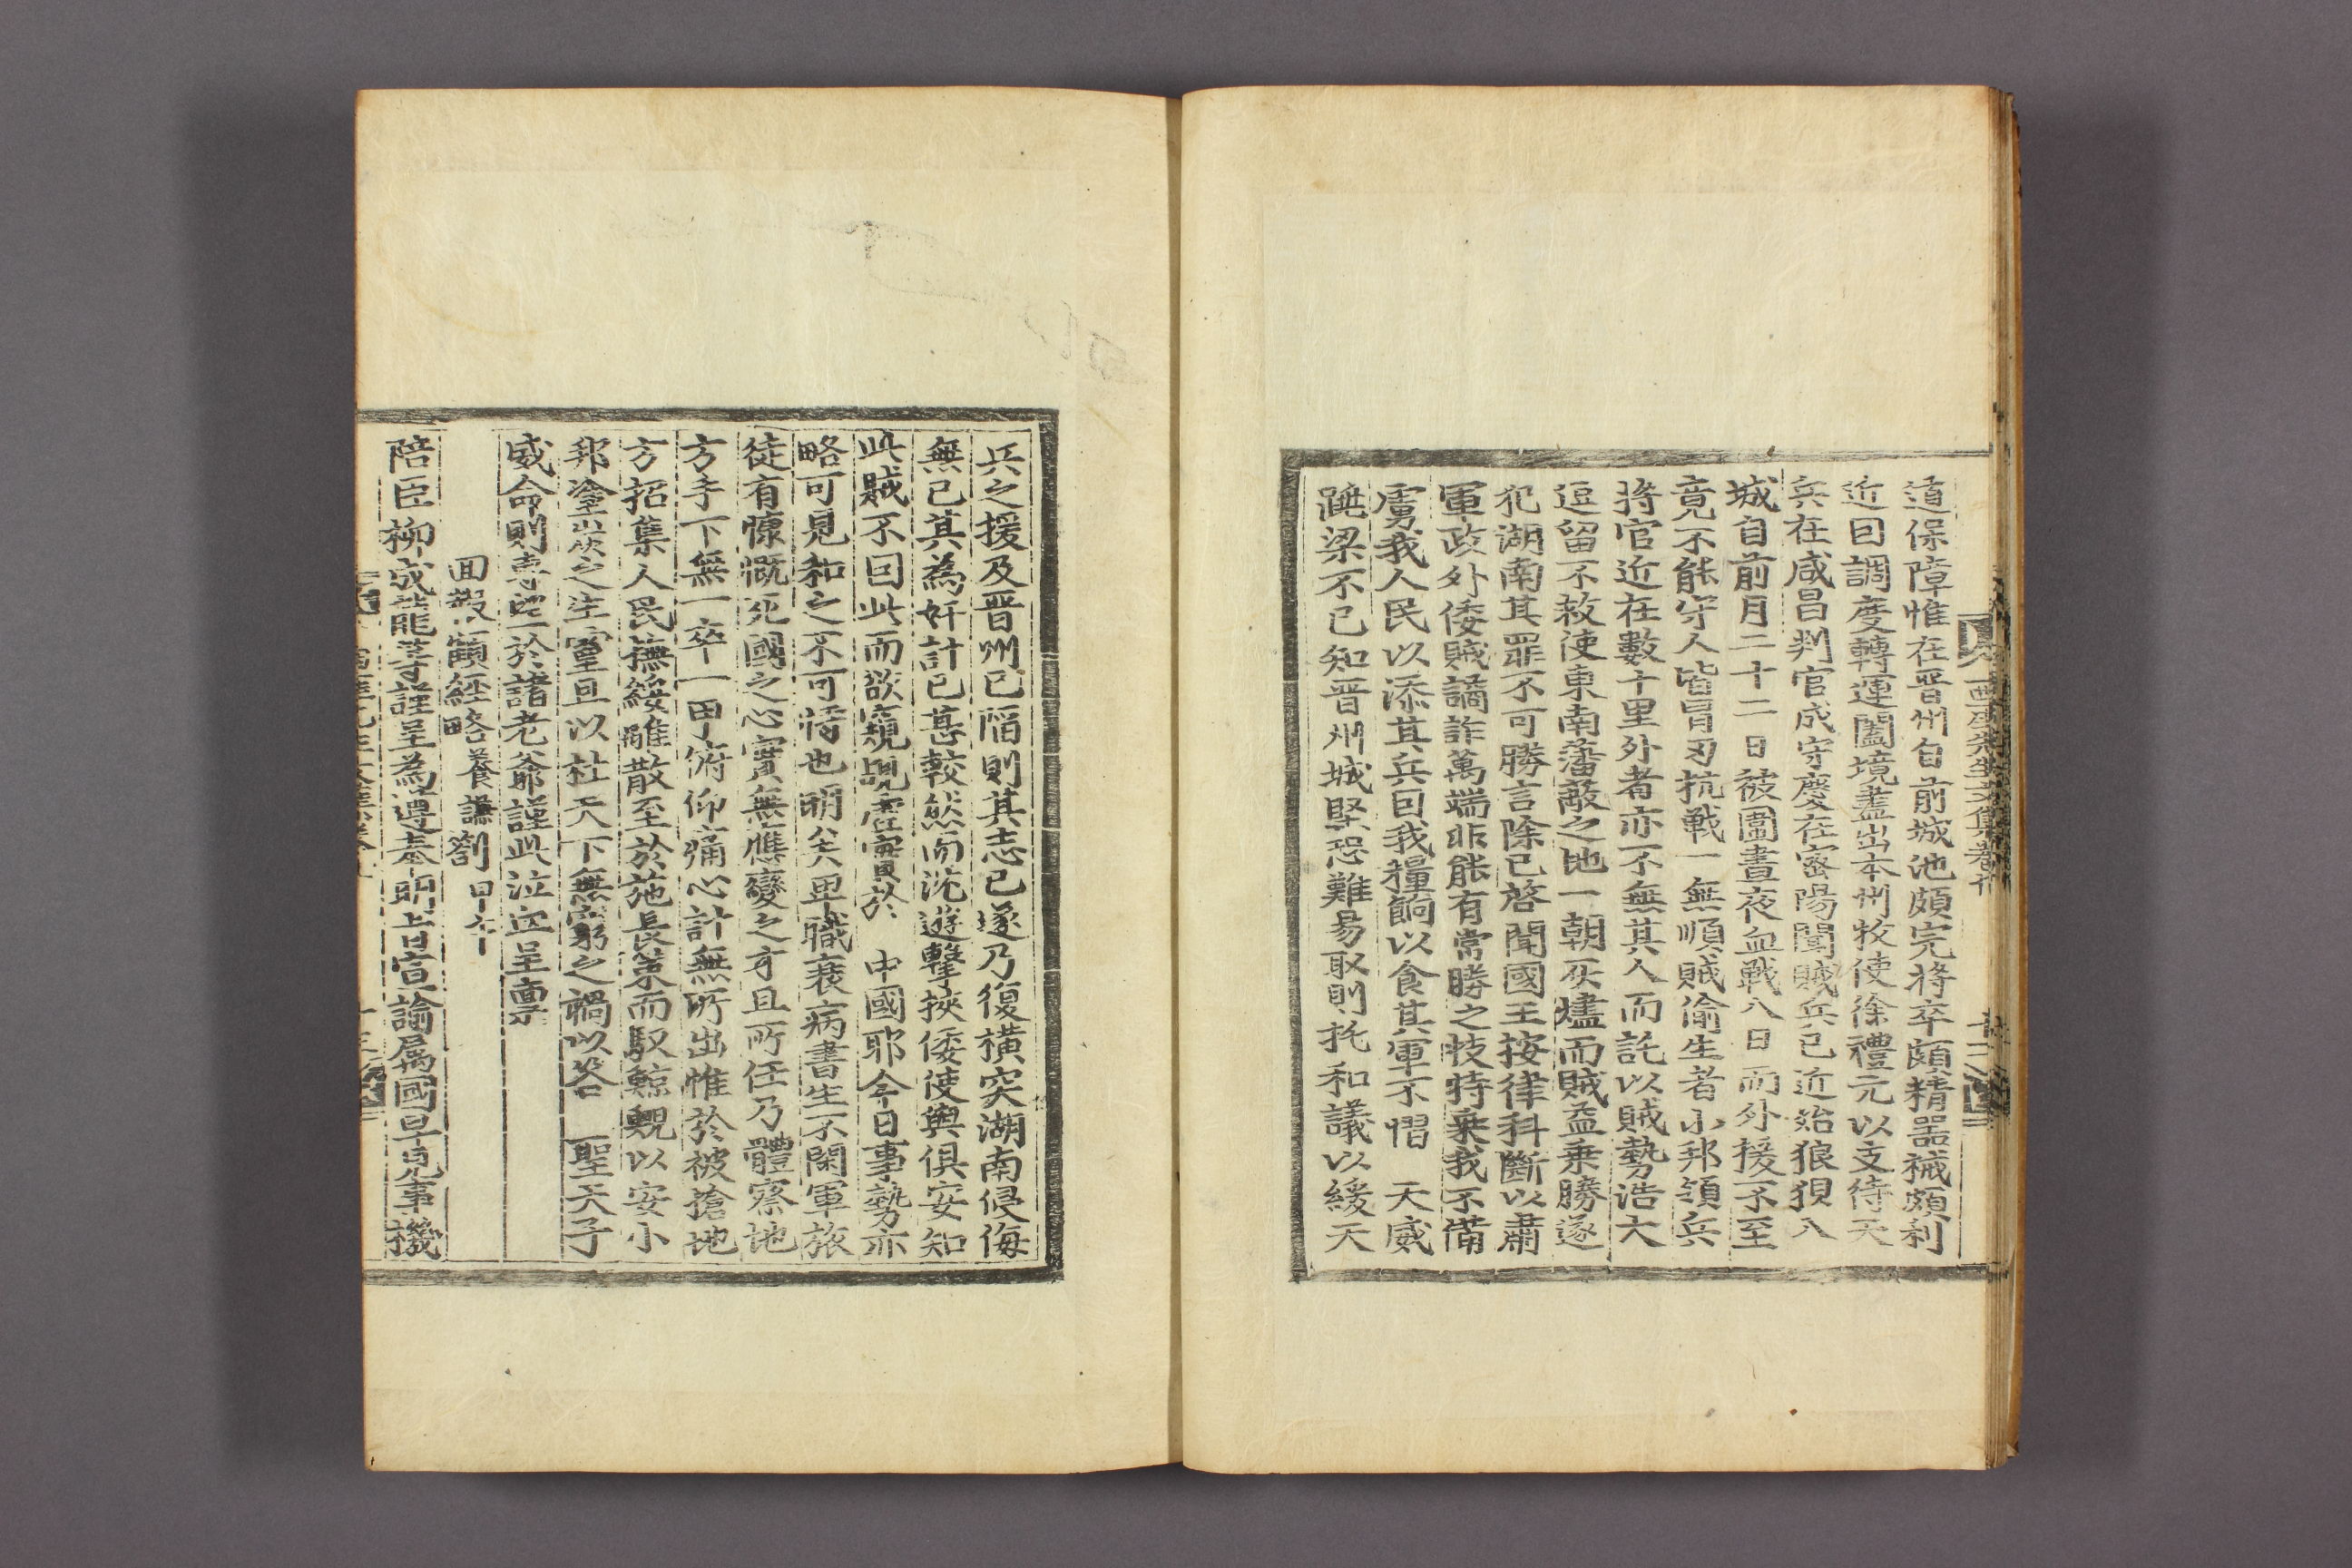 道保障惟在晋州自前城池頗完将卒頗精器械頗利
近日調度轉運闔境盡出本州牧使徐禮元以支待天
兵在咸昌判官成守慶在密陽聞賊兵已近始狼狽入
城自前月二十二日被圍晝夜血戰八日而外援不至
竟不能守人皆冒刃抗戰一無順賊偷生者小邦領兵
将官近在數十里外者亦不無其人而託以賊勢浩大
逗留不救使東南藩蔽之地一朝灰燼而賊益乗勝遂
犯湖南其罪不可勝言除已啓聞國王按律科斷以肅
軍政外倭賊譎詐萬端非能有常勝之技特乗我不備
虜我人民以添其兵因我糧餉以食其軍不慴　天威
跳梁不已知晋州城堅恐難易取則托和議以緩天
兵之援及晋州已陷則其志已遂乃復橫突湖南侵侮
無已其為奸計已甚較然而沈遊擊挾倭使與俱安知
此賊不因此而欲窺覘虛實於　中國耶今日事勢亦
略可見和之不可恃也明矣卑職衰病書生不閑軍旅
徒有慷慨死國之心實無應變之才且所任乃體察地
方手下無一卒一甲俯仰痛心計無所出惟於被搶地
方招集人民撫綏離散至於施長策而馭鯨鯢以安小
邦塗炭之生靈且以杜天下無窮之禍以答　聖天子
威命則專望於諸老爺謹此泣血呈稟
回報顧經略養謙劄甲午
陪臣柳成龍等謹呈為遵奉明旨宣諭屬國早見事機